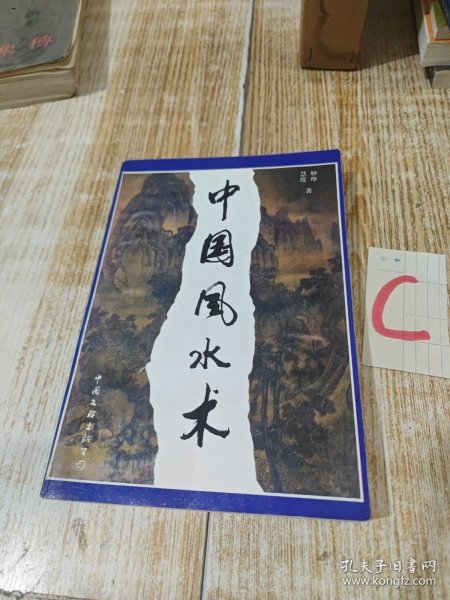 中国风水术
妙摩 著
慧度
中国文联出版公司
C
孔夫子旧书网
www.kongfz.com